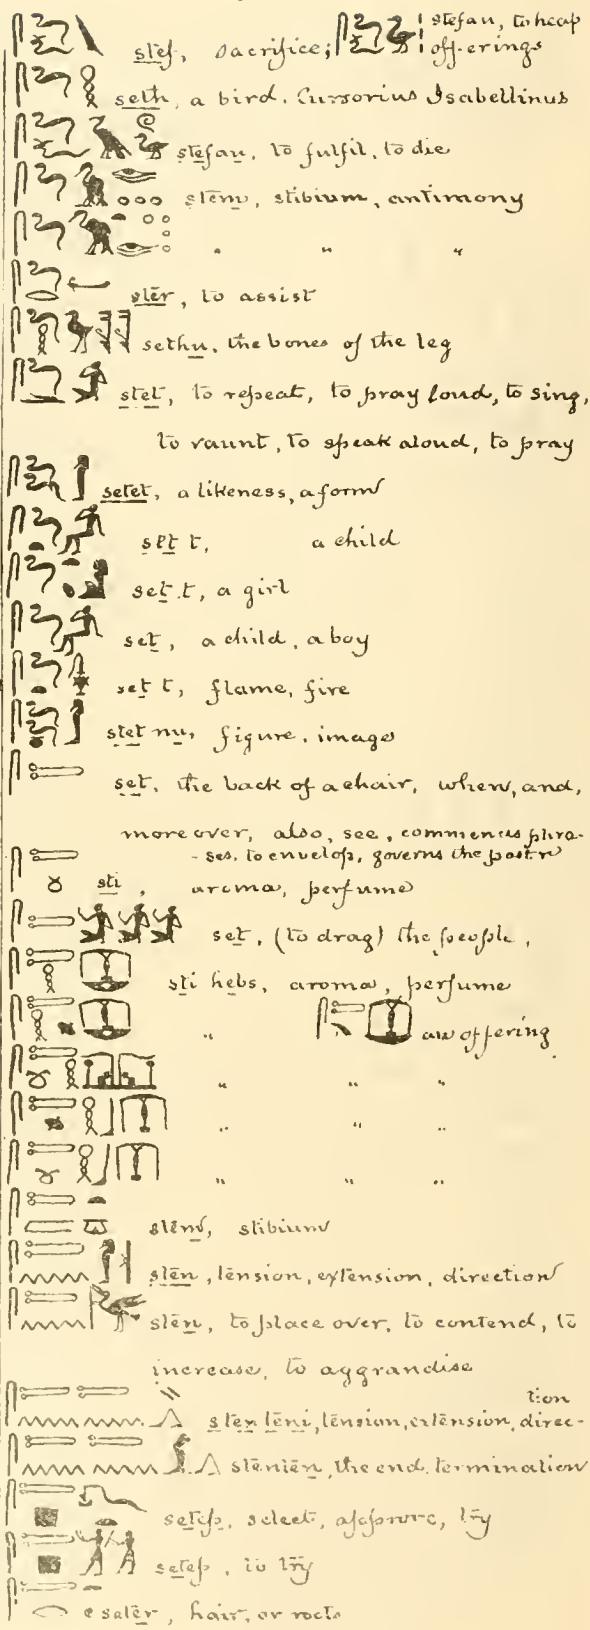 stef, sacrifice; stefau, to heap
offerings
seth, a bird. Cursorius Isabellinus
stefau, to fulfil, to die
stem, stibium, antimony
" " "
ster, to assist
sethu, the bones of the leg
stet, to repeat, to pray loud, to sing,
to raunt, to speak aloud, to pray
setet, a likeness, a form
set t, a child
set.t, a girl
set, a child, a boy
set t, flame, fire
stet nu, figure, image
set, the back of a chair, when, and,
moreover, also, see, commences phra-
-ses, to envelop, governs the past
sti, aroma, perfume
set, (to drag) the people,
sti hebs, aroma, perfume
" an offering
" " "
" " "
" " "
stem, stibium
sten, tension, extension, direction
sten, to place over, to contend, to
increase, to aggrandise
sten teni, tension, extension, direc-
tion
stenten, the end, termination
setep, select, approve, try
setep, to try
sater, hair, or roots